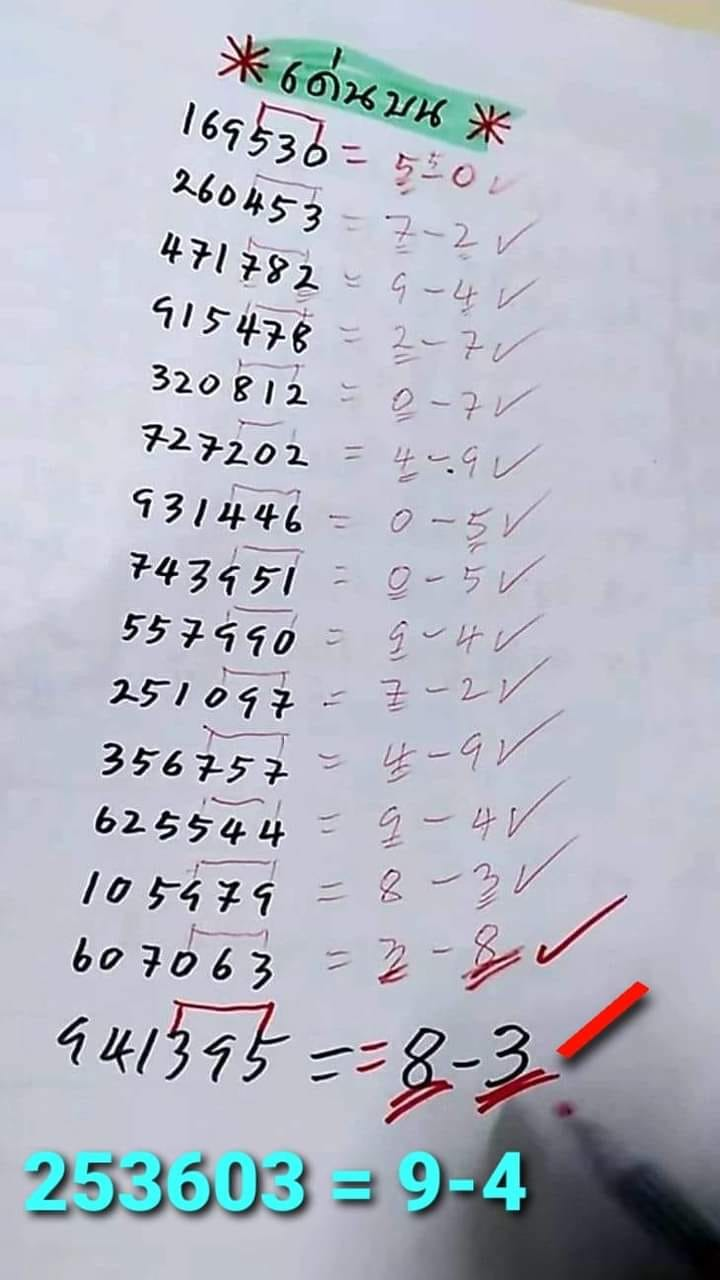 * เด่นบน *
169530 = 5-0 ✓
260453 = 7-2 ✓
471782 = 9-4 ✓
915478 = 2-7 ✓
320812 = 0-7 ✓
727202 = 4-9 ✓
931446 = 0-5 ✓
743951 = 0-5 ✓
557990 = 9-4 ✓
251097 = 7-2 ✓
356757 = 4-9 ✓
625544 = 9-4 ✓
105979 = 8-3 ✓
607063 = 3-8 ✓
941395 == 8-3
253603 = 9-4